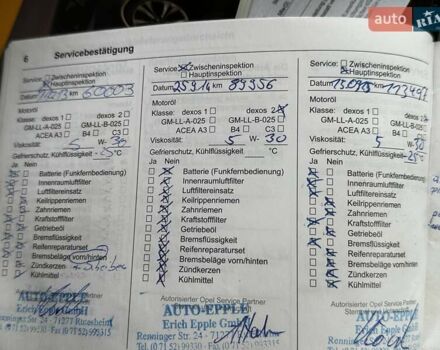 auto
RIA
6 Servicebestätigung
Service: Zwischeninspektion
Hauptinspektion
Datum km 60003
Motoröl
Klasse: dexos 1 dexos 2
GM-LL-A-025 GM-LL-B-025
ACEA A3 B4 C3
Viskosität: 5 W- 30
Gefrierschutz, Kühlflüssigkeit °C
Ja Nein
Batterie (Funkfernbedienung)
Innenraumluftfilter
Luftfiltereinsatz
Keilrippenriemen
Zahnriemen
Kraftstofffilter
Getriebeöl
Bremsflüssigkeit
Reifenreparaturset
Bremsbeläge vorn/hinten
Zündkerzen
Kühlmittel
Autorisierter Opel Service Partner
AUTO-EPPLE
Erich Epple GmbH
Renninger Str. 24 - 71277 Rutesheim
Service: Zwischeninspektion
Hauptinspektion
Datum 25.9.14 km 89956
Motoröl
Klasse: dexos 1 dexos 2
GM-LL-A-025 GM-LL-B-025
ACEA A3 B4 C3
Viskosität: 5 W- 30
Gefrierschutz, Kühlflüssigkeit °C
Ja Nein
Batterie (Funkfernbedienung)
Innenraumluftfilter
Luftfiltereinsatz
Keilrippenriemen
Zahnriemen
Kraftstofffilter
Getriebeöl
Bremsflüssigkeit
Reifenreparaturset
Bremsbeläge vorn/hinten
Zündkerzen
Kühlmittel
Autorisierter Opel Service Partner
AUTO-EPPLE
Erich Epple GmbH
Renninger Str. 24 -
Service: Zwischeninspektion
Hauptinspektion
Datum km
Motoröl
Klasse: dexos 1 dexos 2
GM-LL-A-025 GM-LL-B-025
ACEA A3 B4 C3
Viskosität: 5 W-
Gefrierschutz, Kühlflüssigkeit -25°C
Ja Nein
Batterie (Funkfernbedienung)
Innenraumluftfilter
Luftfiltereinsatz
Keilrippenriemen
Zahnriemen
Kraftstofffilter
Getriebeöl
Bremsflüssigkeit
Reifenreparaturset
Bremsbeläge vorn/hinten
Zündkerzen
Kühlmittel
Autorisierter Opel Service